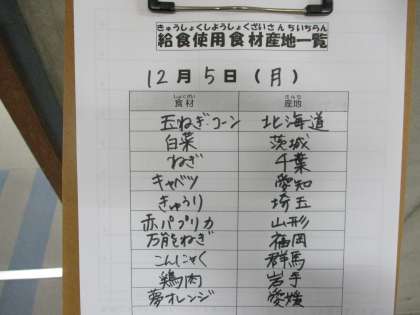 きゅうしょくしようしょくざいさんちいちらん
給食使用食材産地一覧
12月5日(月)
しょくざい さんち
食材 産地
玉ねぎ・コーン 北海道
白菜 茨城
ねぎ 千葉
キャベツ 愛知
きゅうり 埼玉
赤パプリカ 山形
万能ねぎ 福岡
こんにゃく 群馬
鶏肉 岩手
夢オレンジ 愛媛